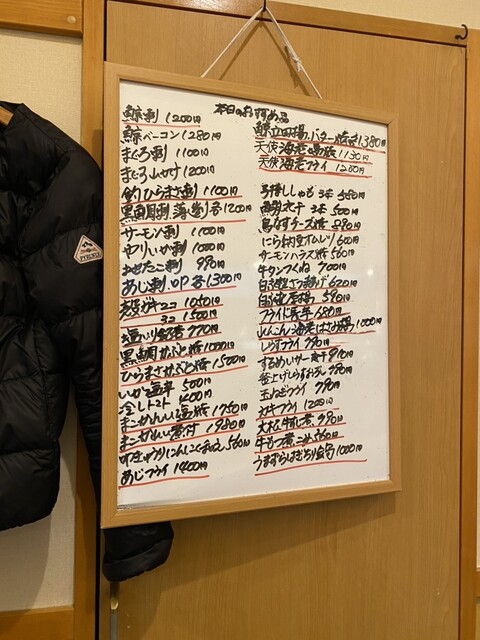 本日のおすすめ品
鯨刺 1200円
鯨ベーコン 1280円
まぐろ刺 1100円
まぐろ山かけ 1200円
釣ひらまさ刺 1100円
黒鯛刺 薄造り各1200円
サーモン刺 1100円
ヤリいか刺 1000円
みずたこ刺 990円
あじ刺、叩各1300円
1050円
1500円
塩いり銀杏 770円
黒鯛かぶと焼 1000円
ひらまさかぶと焼 1500円
いか塩辛 500円
冷しトマト 400円
まこがれい塩焼 1750円
まこがれい煮付 1980円
叩きゅうりにんにく和え 560円
あじフライ 1400円
鯨立田揚、バター焼各1380円
天使海老の塩焼 1130円
天使海老フライ 1280円
子持ししゃも 3本 580円
3本 500円
長なすチーズ焼 890円
にら納豆オムレツ 600円
サーモンハラス焼 560円
牛タンつくね 700円
620円
590円
フライド長芋 680円
1000円
しらすフライ 990円
するめいか一夜干 970円
釜上げしらすおろし 770円
玉ねぎフライ 790円
カキフライ 1200円
大根牛すじ煮 990円
牛もつ煮こみ 860円
うまづらはぎちり鍋 1000円
PYRENEX